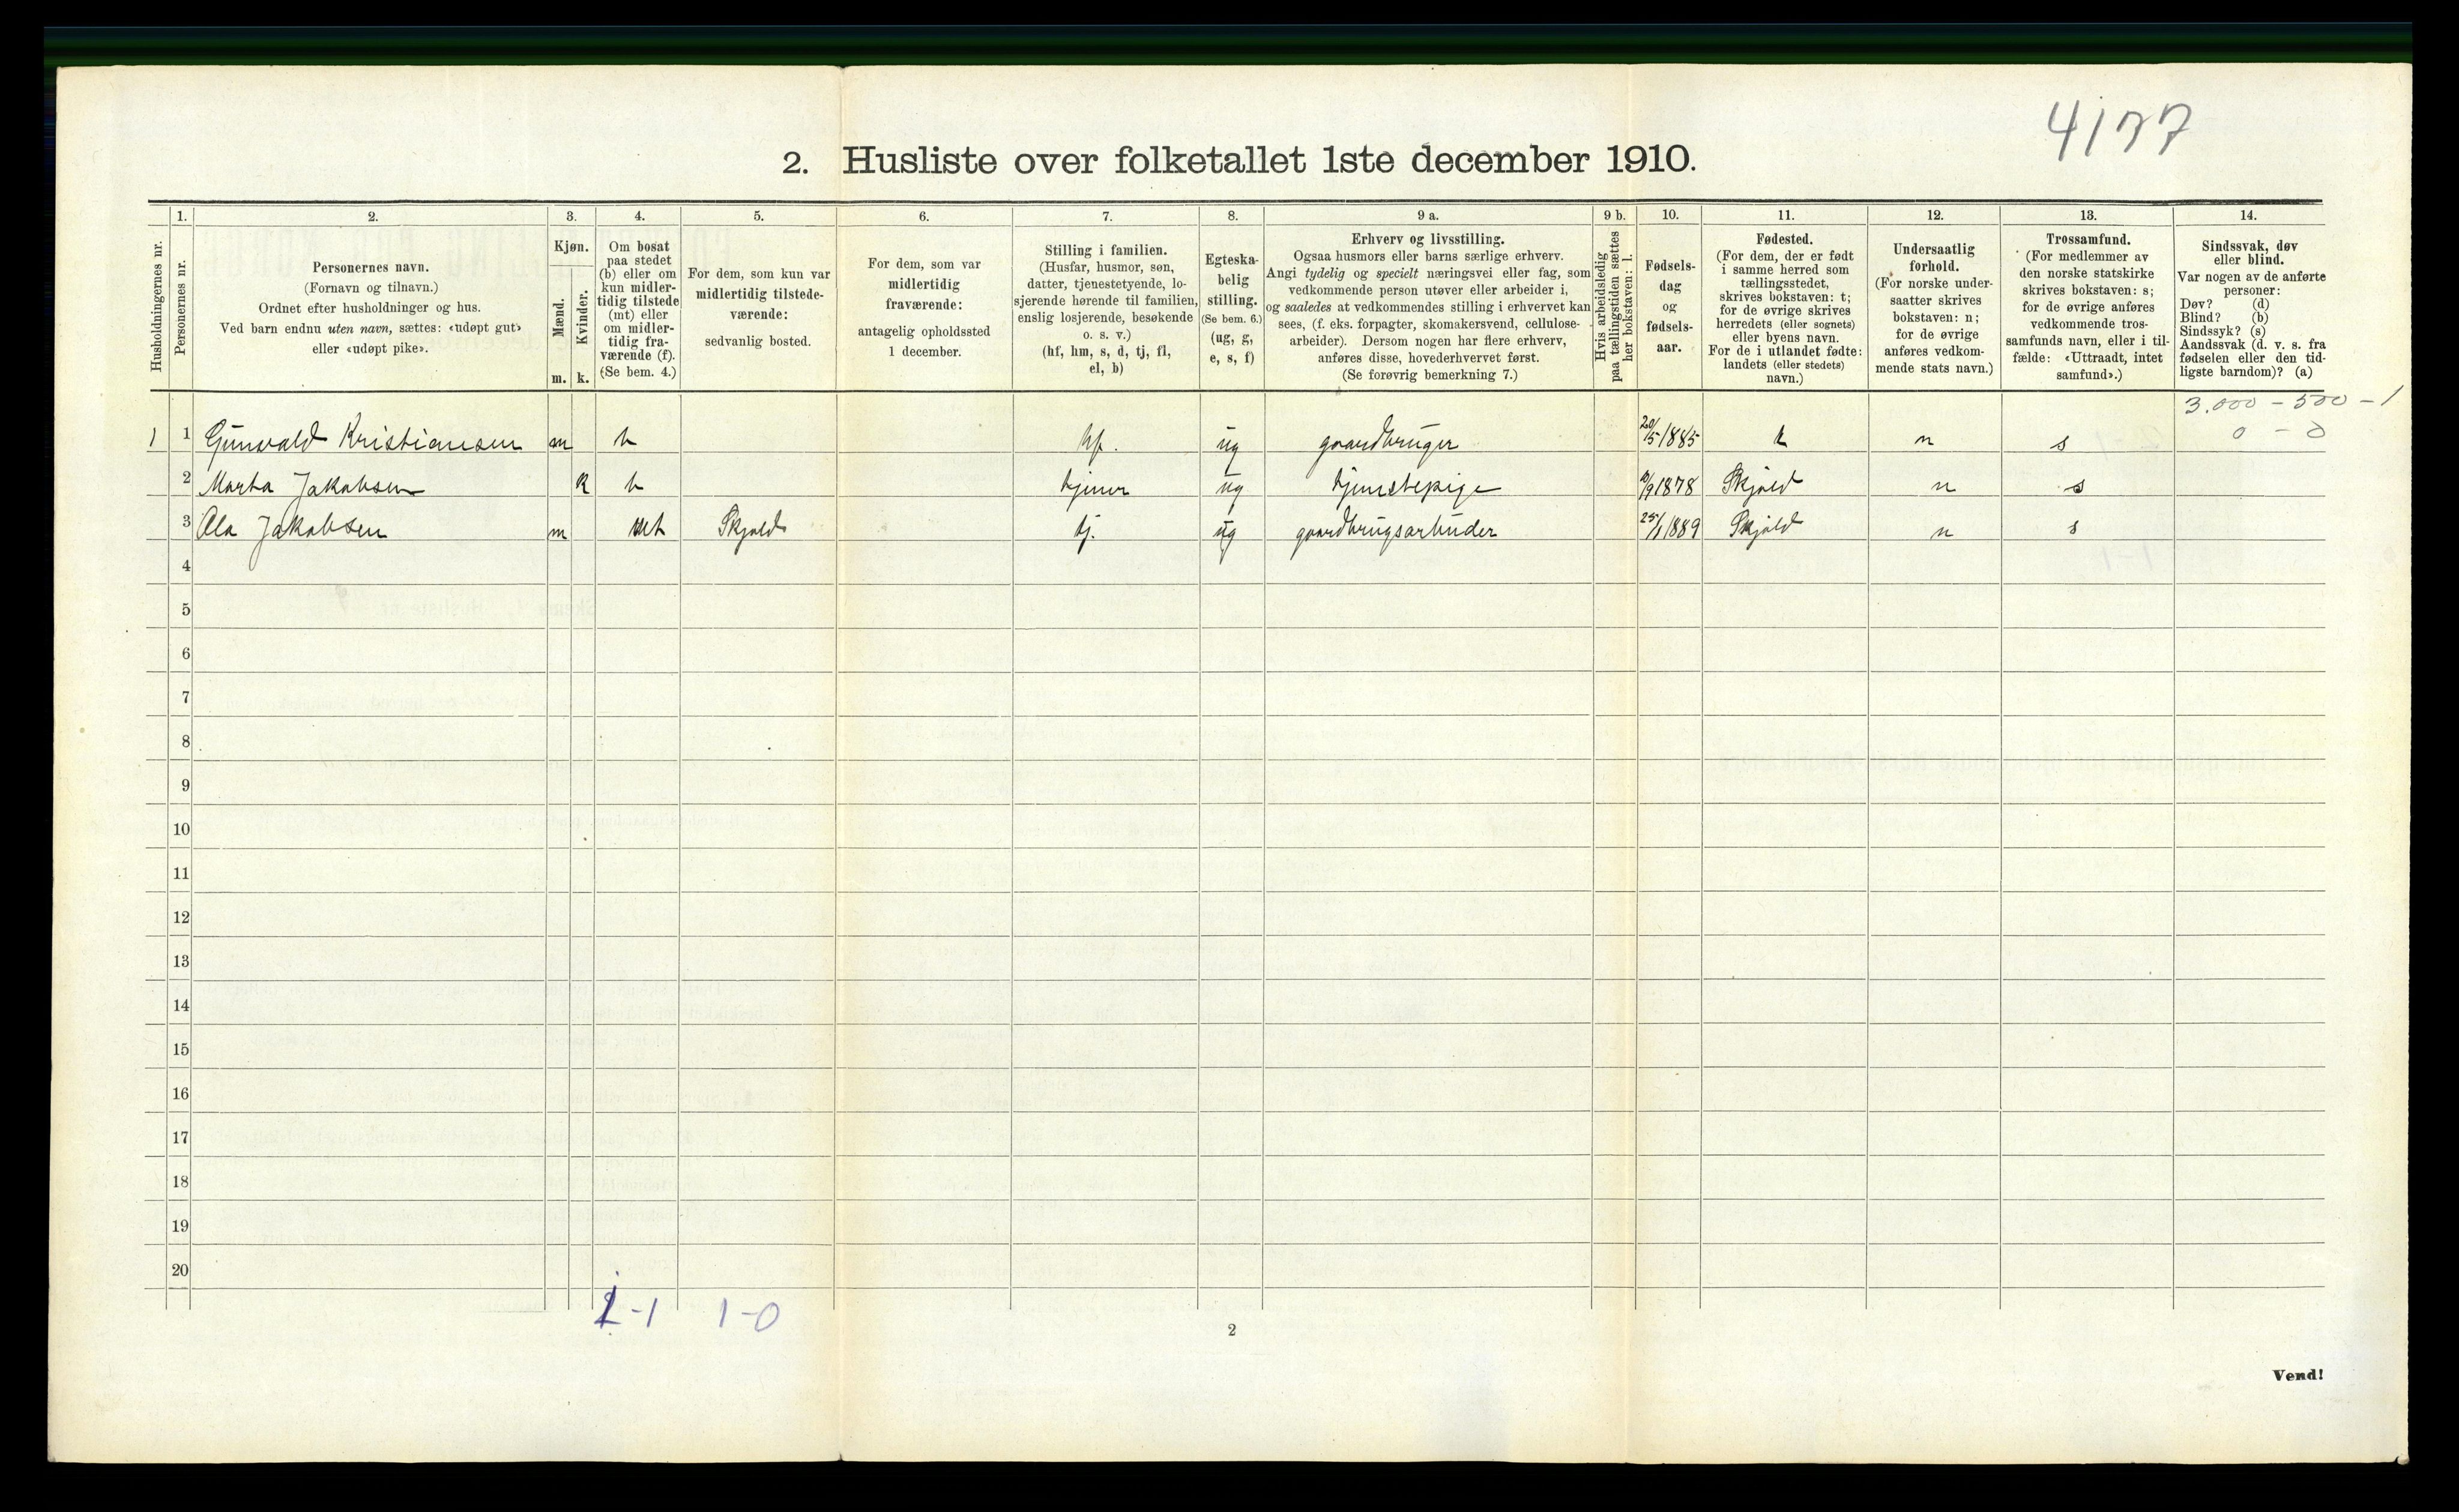 4177
2. Husliste over folketallet 1ste december 1910.
Husholdningernes nr.
1. Personernes nr.
2. Personernes navn.
(Fornavn og tilnavn.)
Ordnet efter husholdninger og hus.
Ved barn endnu uten navn, sættes: «udøpt gut»
eller «udøpt pike».
3. Kjøn.
Mænd. Kvinder.
m. k.
4. Om bosat
paa stedet
(b) eller om
kun midler-
tidig tilstede
(mt) eller
om midler-
tidig fra-
værende (f).
(Se bem. 4.)
5. For dem, som kun var
midlertidig tilstede-
værende:
sedvanlig bosted.
6. For dem, som var
midlertidig
fraværende:
antagelig opholdssted
1 december.
7. Stilling i familien.
(Husfar, husmor, søn,
datter, tjenestetyende, lo-
sjerende hørende til familien,
enslig losjerende, besøkende
o. s. v.)
(hf, hm, s, d, tj, fl,
el, b)
8. Egteska-
belig
stilling.
(Se bem. 6.)
(ug, g,
e, s, f)
9 a. Erhverv og livsstilling.
Ogsaa husmors eller barns særlige erhverv.
Angi tydelig og specielt næringsvei eller fag, som
vedkommende person utøver eller arbeider i,
og saaledes at vedkommendes stilling i erhvervet kan
sees, (f. eks. forpagter, skomakersvend, cellulose-
arbeider). Dersom nogen har flere erhverv,
anføres disse, hovederhvervet først.
(Se forøvrig bemerkning 7.)
9 b. Hvis arbeidsledig
paa tællingstiden sættes
her bokstaven: l.
10. Fødsels-
dag
og
fødsels-
aar.
11. Fødested.
(For dem, der er født
i samme herred som
tællingsstedet,
skrives bokstaven: t;
for de øvrige skrives
herredets (eller sognets)
eller byens navn.
For de i utlandet fødte:
landets (eller stedets)
navn.)
12. Undersaatlig
forhold.
(For norske under-
saatter skrives
bokstaven: n;
for de øvrige
anføres vedkom-
mende stats navn.)
13. Trossamfund.
(For medlemmer av
den norske statskirke
skrives bokstaven: s;
for de øvrige anføres
vedkommende tros-
samfunds navn, eller i til-
fælde: «Uttraadt, intet
samfund».)
14. Sindssvak, døv
eller blind.
Var nogen av de anførte
personer:
Døv? (d)
Blind? (b)
Sindssyk? (s)
Aandssvak (d. v. s. fra
fødselen eller den tid-
ligste barndom)? (a)
3.000 - 500 - 1
0 - 0
1 1 Gunvald Kristiansen m b hf. ug gaardbruger 20/5 1885 t n s
2 Marta Jakobsen k b tjener ug tjenstepige 1878 Skjold n s
3 Ola Jakobsen m mt Skjold tj. ug gaardbrugsarbeider 25/1 1889 Skjold n s
4
5
6
7
8
9
10
11
12
13
14
15
16
17
18
19
20
1-1 1-0
2
Vend!